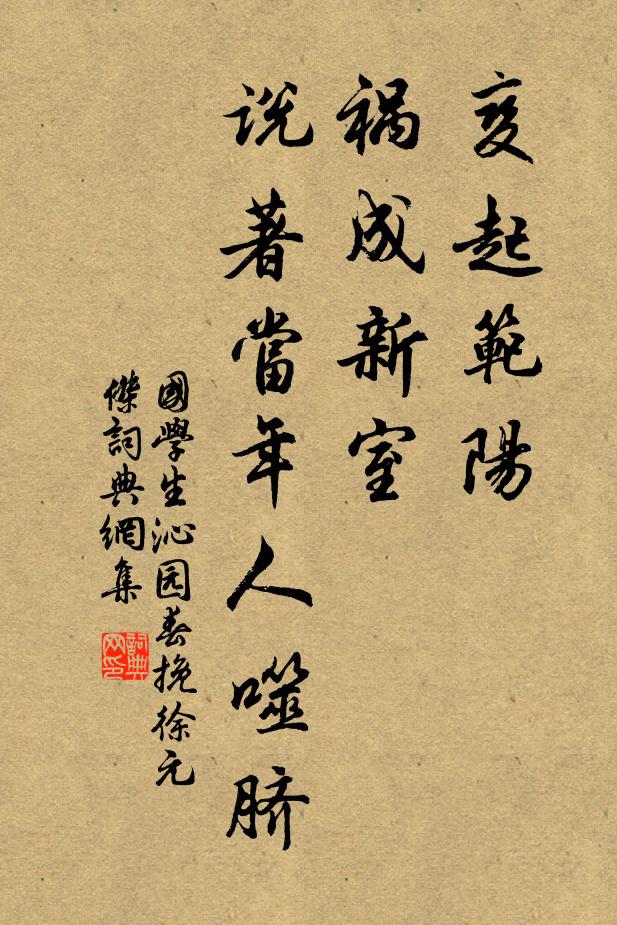 变起範陽
祸成新室
说著當年人噬脐
國學生沁园春挽徐元
傑詞典網集
詞典网印